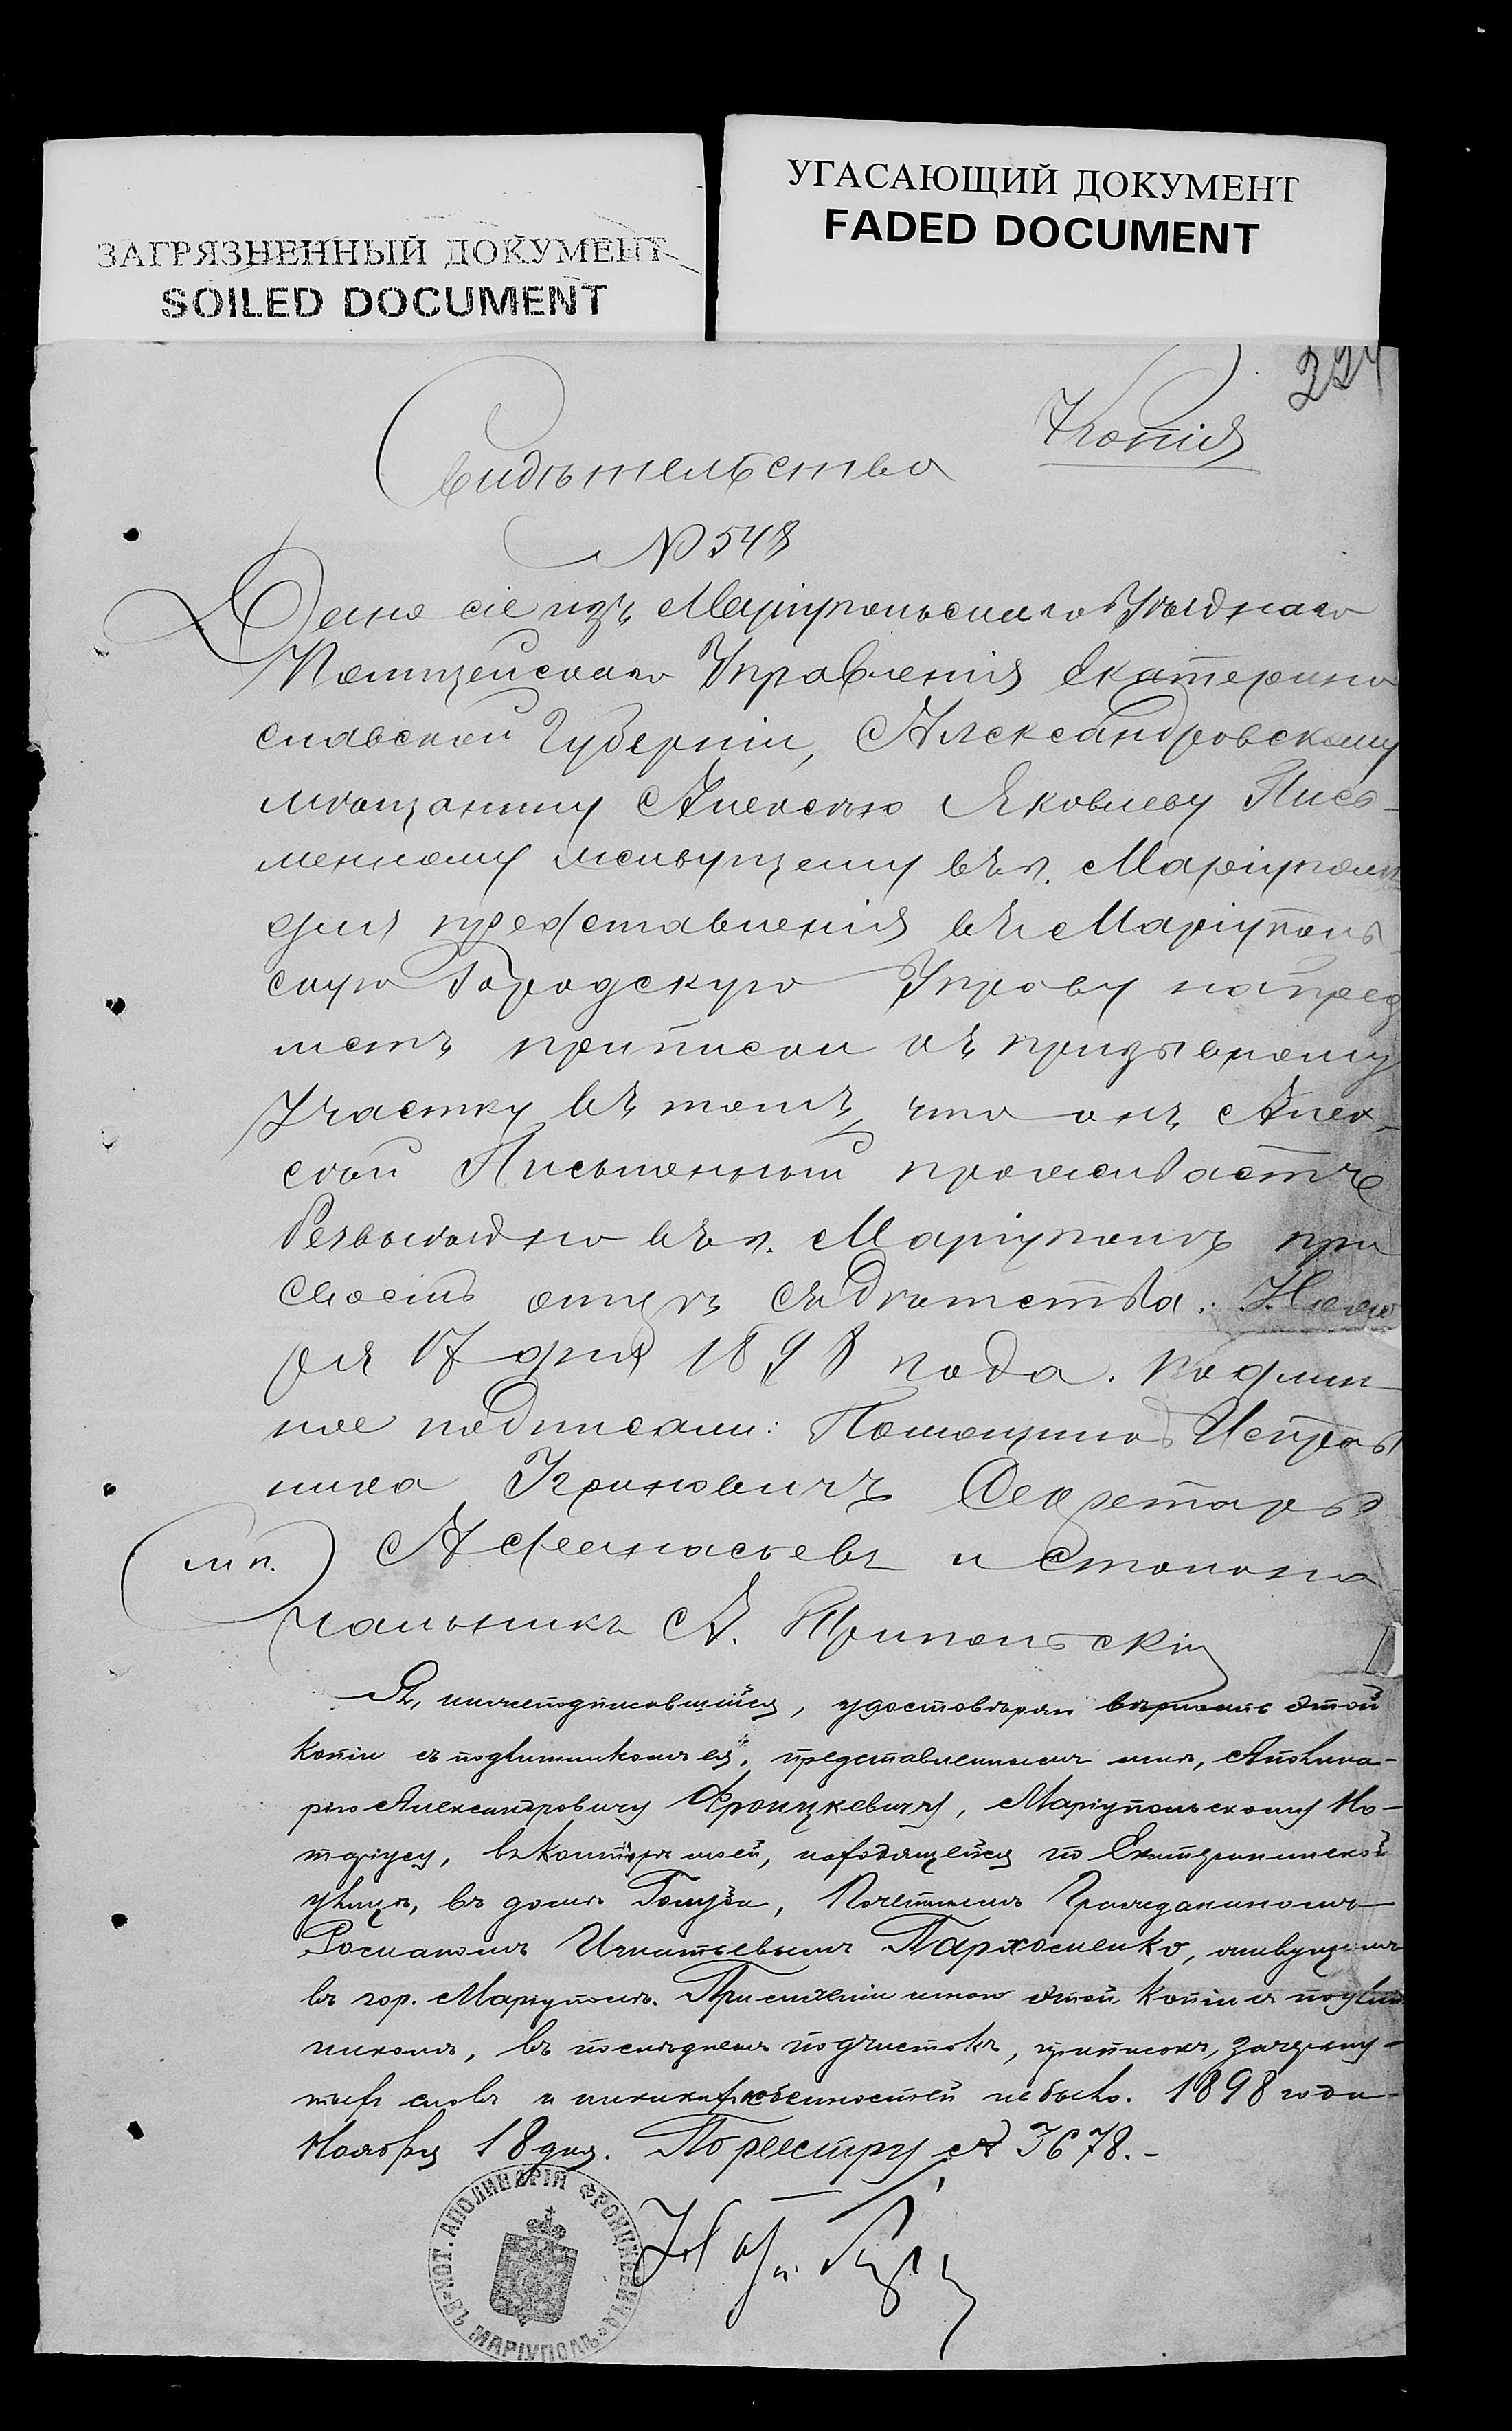 УГАСАЮЩИЙ ДОКУМЕНТ
FADED DOCUMENT
ЗАГРЯЗНЕННЫЙ ДОКУМЕНТ
SOILED DOCUMENT
224
Копія
Свидѣтельство
№ 548
Дано сіе изъ Маріупольскаго Уѣзднаго
Полицейскаго Управленія Екатерино
славской Губерніи, Александровскому
мѣщанину Алексѣю Яковлеву Пись-
менному живущему въ г. Маріуполѣ
для представленія въ Маріуполь
скую Городскую Управу на пред
метъ приписки къ призывному
Участку въ томъ, что онъ Алек-
сѣй Письменный проживаетъ
безвыѣздно въ г. Маріуполѣ при
своемъ отцѣ съ дѣтства. Нояб
ря 17 дня 1898 года. Подлин
ное подписали: Помощникъ Исправ
ника Секретарь
(м п.) Афанасьевъ и Столона
чальникъ А. Трипольскій
Я, нижеподписавшійся, удостовѣряю вѣрность этой
копіи съ подлинникомъ ея, представленнымъ мнѣ, Аполина-
рію Александровичу Фроицкевичу, Маріупольскому Но-
таріусу, въ конторѣ моей, находящейся по Екатерининской
улицѣ, въ домѣ Почетнымъ Гражданиномъ
Игнатьевымъ Пархоменко, живущимъ
въ гор. Маріуполѣ. При сличеніи мною этой копіи съ подлин
никомъ, въ послѣднемъ подчистокъ, приписокъ, зачеркну-
тыхъ словъ и никакихъ особенностей не было. 1898 года
Ноября 18 дня. По реестру № 3678.-
НОТ. АПОЛИНАРІЙ ФРОИЦКЕВИЧЪ ВЪ МАРІУПОЛѢ